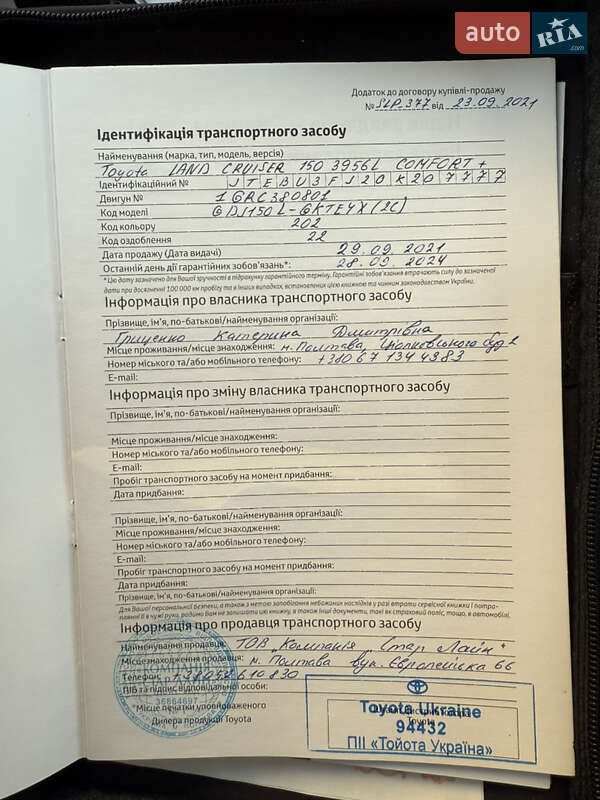 auto RIA .com
Додаток до договору купівлі-продажу
№ SLP-377 від 23.09.2021
Ідентифікація транспортного засобу
Найменування (марка, тип, модель, версія)
Toyota LAND CRUISER 150 3956L COMFORT+
Ідентифікаційний № JTEBU3FJ20K207777
Двигун № 1GRC380801
Код моделі GRJ150L-GKTEYX(2C)
Код кольору 202
Код оздоблення 22
Дата продажу (Дата видачі) 29.09.2021
Останній день дії гарантійних зобов'язань*: 28.09.2024
*Цю дату зазначено для Вашої зручності в підрахунку гарантійного терміну. Гарантійні зобов'язання втрачають силу до зазначеної
дати при досягненні 100 000 км пробігу та в інших випадках, встановлених цією книжкою та чинним законодавством України.
Інформація про власника транспортного засобу
Прізвище, ім'я, по-батькові/найменування організації:
Гриценко Катерина Дмитрівна
Місце проживання/місце знаходження: м. Полтава, Ціолковського буд 2
Номер міського та/або мобільного телефону: +380 67 134 4383
E-mail:
Інформація про зміну власника транспортного засобу
Прізвище, ім'я, по-батькові/найменування організації:
Місце проживання/місце знаходження:
Номер міського та/або мобільного телефону:
E-mail:
Пробіг транспортного засобу на момент придбання:
Дата придбання:
Прізвище, ім'я, по-батькові/найменування організації:
Місце проживання/місце знаходження:
Номер міського та/або мобільного телефону:
E-mail:
Пробіг транспортного засобу на момент придбання:
Дата придбання:
Прізвище, ім'я, по-батькові/найменування організації:
Для Вашої персональної безпеки, а також з метою запобігання небажаних наслідків у разі втрати сервісної книжки і потрап-
ляння її в чужі руки, радимо Вам не залишати цю книжку, а також інші документи, такі як страховий поліс, тощо, в автомобілі.
Інформація про продавця транспортного засобу
Найменування продавця: ТОВ „Компанія „Стар Лайн"
Місцезнаходження продавця: м. Полтава вул. Європейська 66
Телефон: +380532610830
ПІБ та підпис відповідальної особи:
КОМПАНІЯ
36864697
*Місце печатки уповноваженого
Дилера продукції Toyota
Toyota Ukraine
Toyota
94432
ПІІ «Тойота Україна»